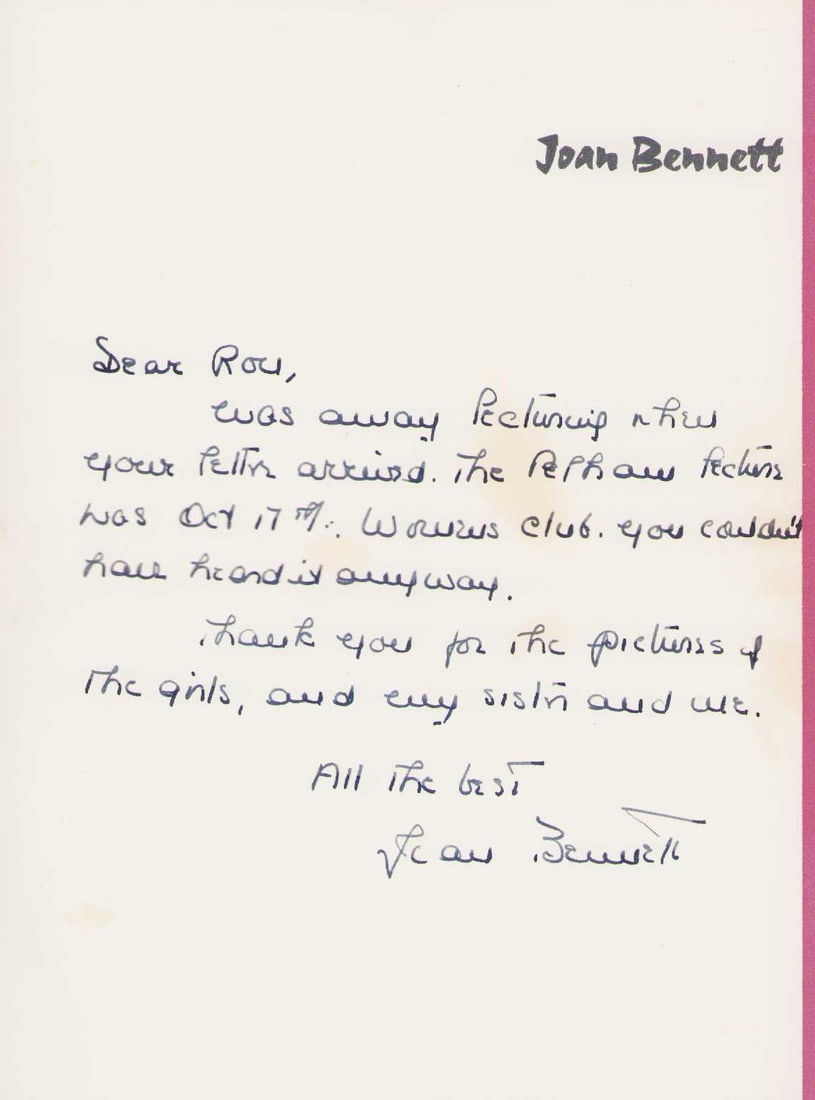 Joan Bennett
Dear Ron,
Was away lecturing when
your letter arrived. The Pelham lecture
was Oct 17th. Womens Club. You couldn't
have heard it anyway.
Thank you for the pictures of
the girls, and my sister and me.
All the best
Joan Bennett